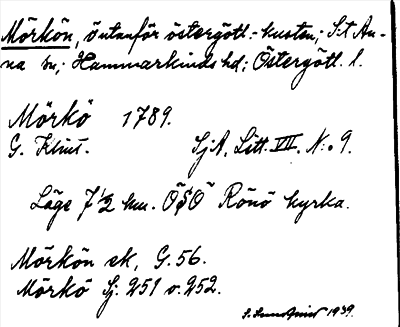 Mörkön, ö utanför östergötl.-kusten; S:t An-
na sn; Hammarkinds hd; Östergötl. l.
Mörkö 1789.
G. Klint. SjA. Litt. VII. N:o 9.
Läge 7 1/2 km. ÖSÖ Rönö kyrka.
Mörkön ek, G. 56.
Mörkö Sj. 251 o. 252.
S. Sundqvist 1939.